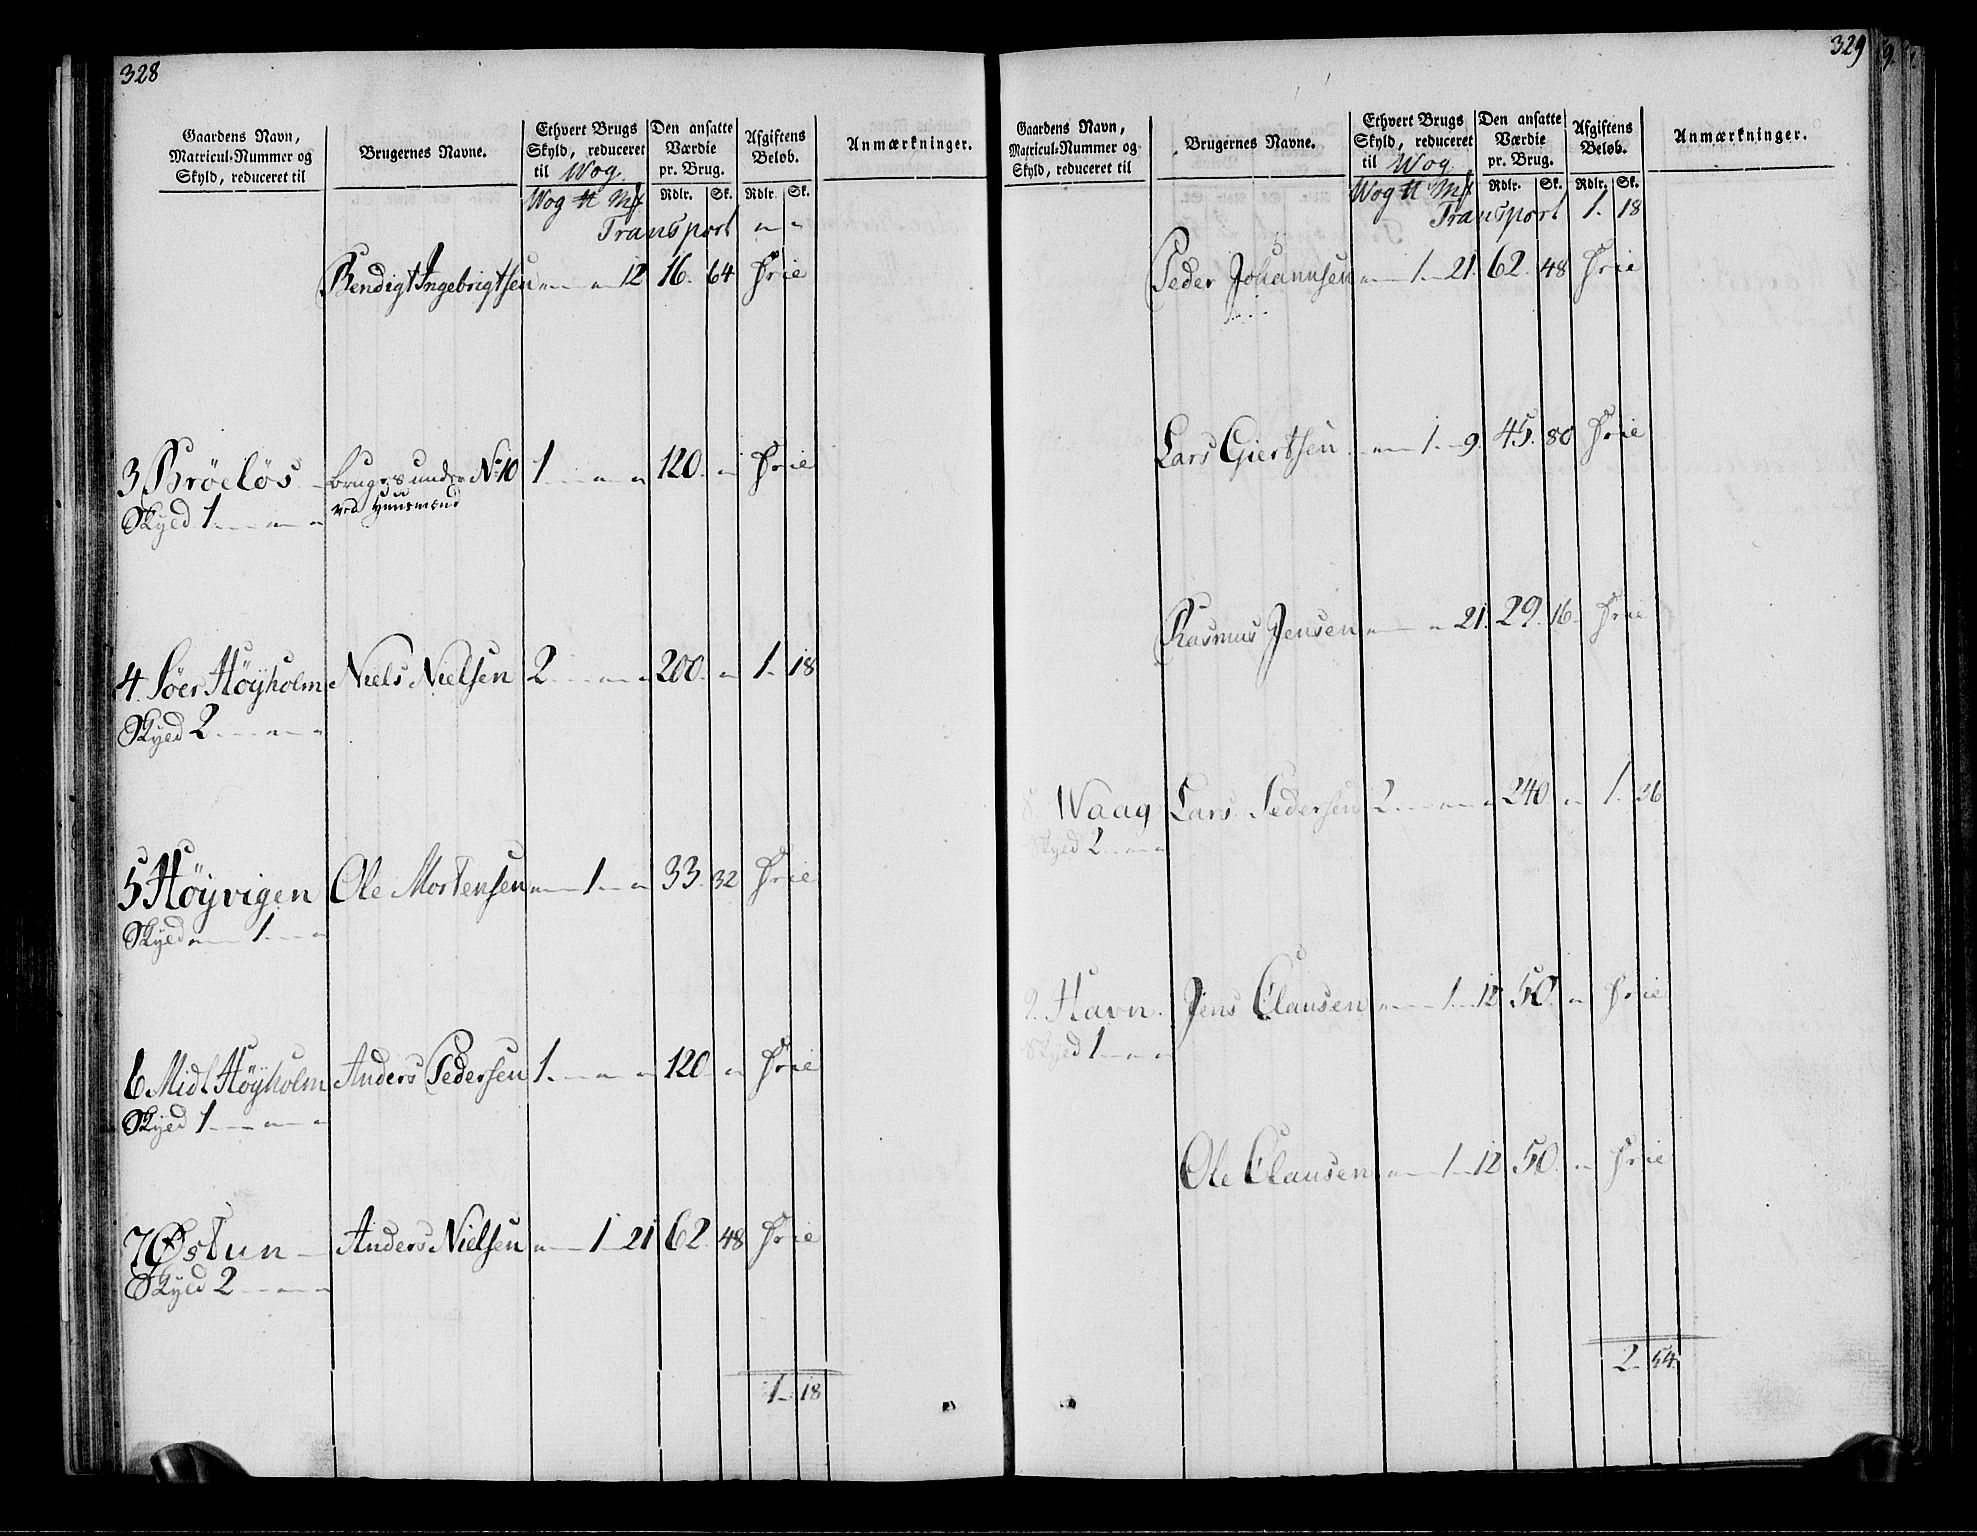 328
Gaardens Navn, Matricul-Nummer og Skyld, reduceret til | Brugernes Navne. | Ethvert Brugs Skyld, reduceret til Wog. | Den ansatte Værdie pr. Brug. | Afgiftens Beløb. | Anmærkninger.
Wog ℔ Mſ | Rdlr. | Sk. | Rdlr. | Sk.
Transport " "
Bendigt Ingebrigtsen " " 12 16. 64 Frie
3 Brøeløs - bruges under No 10 1 " " 120. " Frie
Skyld 1 " " ved Huusmænd
4. Søer Høyholm Niels Nielsen 2 " " 200. " 1. 18
Skyld 2 " "
5 Høyvigen Ole Mortensen " 1 " 33. 32 Frie
Skyld " 1 "
6 Midl Høyholm Anders Pedersen 1. " " 120. " Frie
Skyld 1 " "
7 Østun Anders Nielsen " 1 21 62. 48 Frie
Skyld 2 " "
1. 18
329
Gaardens Navn, Matricul-Nummer og Skyld, reduceret til | Brugernes Navne. | Ethvert Brugs Skyld, reduceret til Wog. | Den ansatte Værdie pr. Brug. | Afgiftens Beløb. | Anmærkninger.
Wog ℔ Mſ | Rdlr. | Sk. | Rdlr. | Sk.
Transport 1. 18
Peder Johannsen " 1. 21. 62. 48 Frie
Lars Giertsen " 1. 9. 45. 80 Frie
Rasmus Jensen " " 21. 29. 16 Frie
8. Waag Lars Pedersen 2 " " 240. " 1. 36
Skyld 2 " "
9. Havn. Jens Clausen " 1. 12 50. " Frie
Skyld 1 " "
Ole Clausen " 1 12 50. " Frie
2. 54.